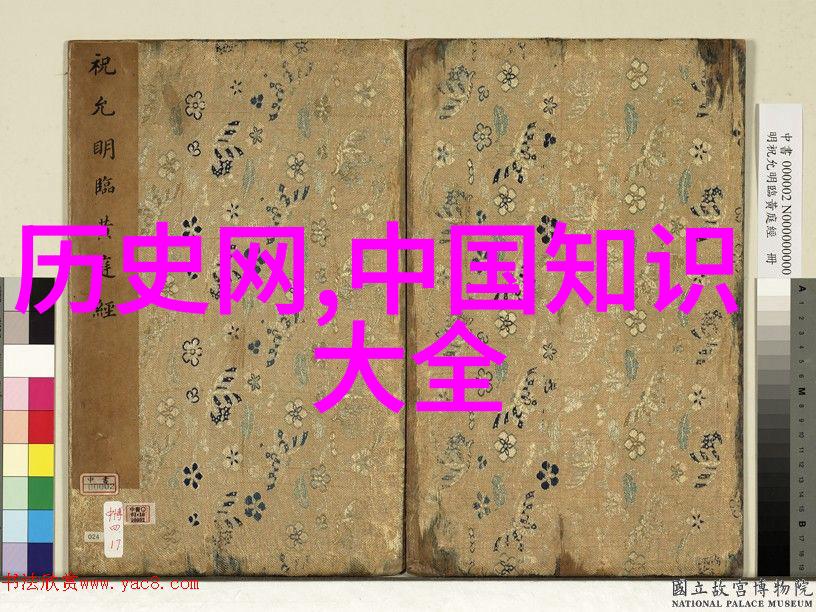 祝允明臨黃庭經
历史网,中国知识
大全
中書 000002 N000000000
明祝允明臨黃庭經 冊
中書
00002
024
中博
四
17
A
M
B
书法欣赏www.yac8.com
國立故宮博物院
NATIONAL PALACE MUSEUM